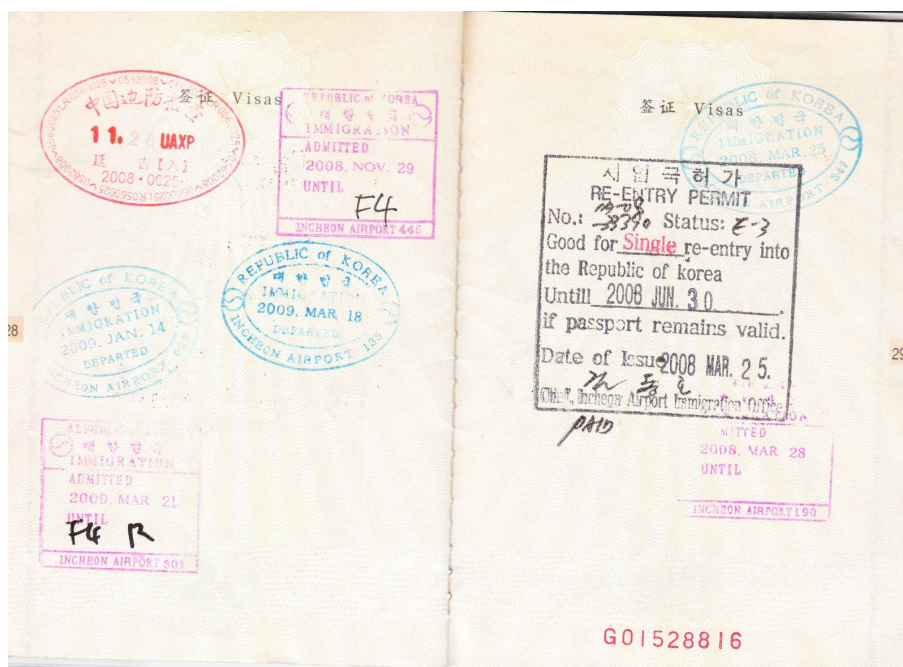 签证 Visas
中国边防检查
11.26 UAXP
延 吉【入】
2008·0025
REPUBLIC of KOREA
대 한 민 국
IMMIGRATION
ADMITTED
2008. NOV. 29
UNTIL
F4
INCHEON AIRPORT 445
REPUBLIC of KOREA
대 한 민 국
IMMIGRATION
2009. MAR 18
DEPARTED
INCHEON AIRPORT 133
REPUBLIC of KOREA
대 한 민 국
IMMIGRATION
2009. JAN. 14
DEPARTED
INCHEON AIRPORT
28
대 한 민 국
IMMIGRATION
ADMITTED
2009. MAR 21
UNTIL
F4 R
INCHEON AIRPORT 301
签证 Visas
REPUBLIC of KOREA
대 한 민 국
IMMIGRATION
2008. MAR. 25
DEPARTED
AIRPORT 347
입국허가
RE-ENTRY PERMIT
No.: Status: E-3
Good for Single re-entry into
the Republic of korea
Untill 2008 JUN. 30.
if passport remains valid.
Date of Issu 2008 MAR. 25.
Chief, Incheon Airport Immigration Office
PAID
MITTED
2008. MAR 28
UNTIL
INCHEON AIRPORT 190
29
G01528816